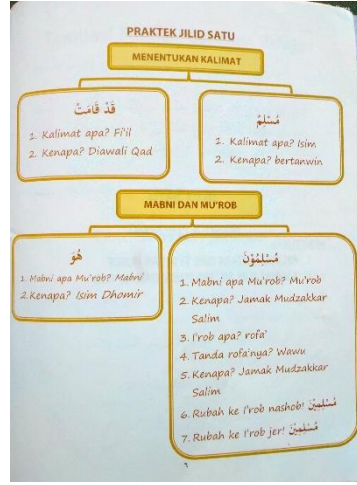 PRAKTEK JILID SATU
MENENTUKAN KALIMAT
قَدْ قَامَتْ
1. Kalimat apa? Fi'il
2. Kenapa? Diawali Qad
مُسْلِمٌ
1. Kalimat apa? Isim
2. Kenapa? bertanwin
MABNI DAN MU'ROB
هُوَ
1. Mabni apa Mu'rob? Mabni
2. Kenapa? Isim Dhomir
مُسْلِمُوْنَ
1. Mabni apa Mu'rob? Mu'rob
2. Kenapa? Jamak Mudzakkar
Salim
3. I'rob apa? rofa'
4. Tanda rofa'nya? Wawu
5. Kenapa? Jamak Mudzakkar
Salim
6. Rubah ke I'rob nashob! مُسْلِمِيْنَ
7. Rubah ke I'rob jer! مُسْلِمِيْنَ
٦